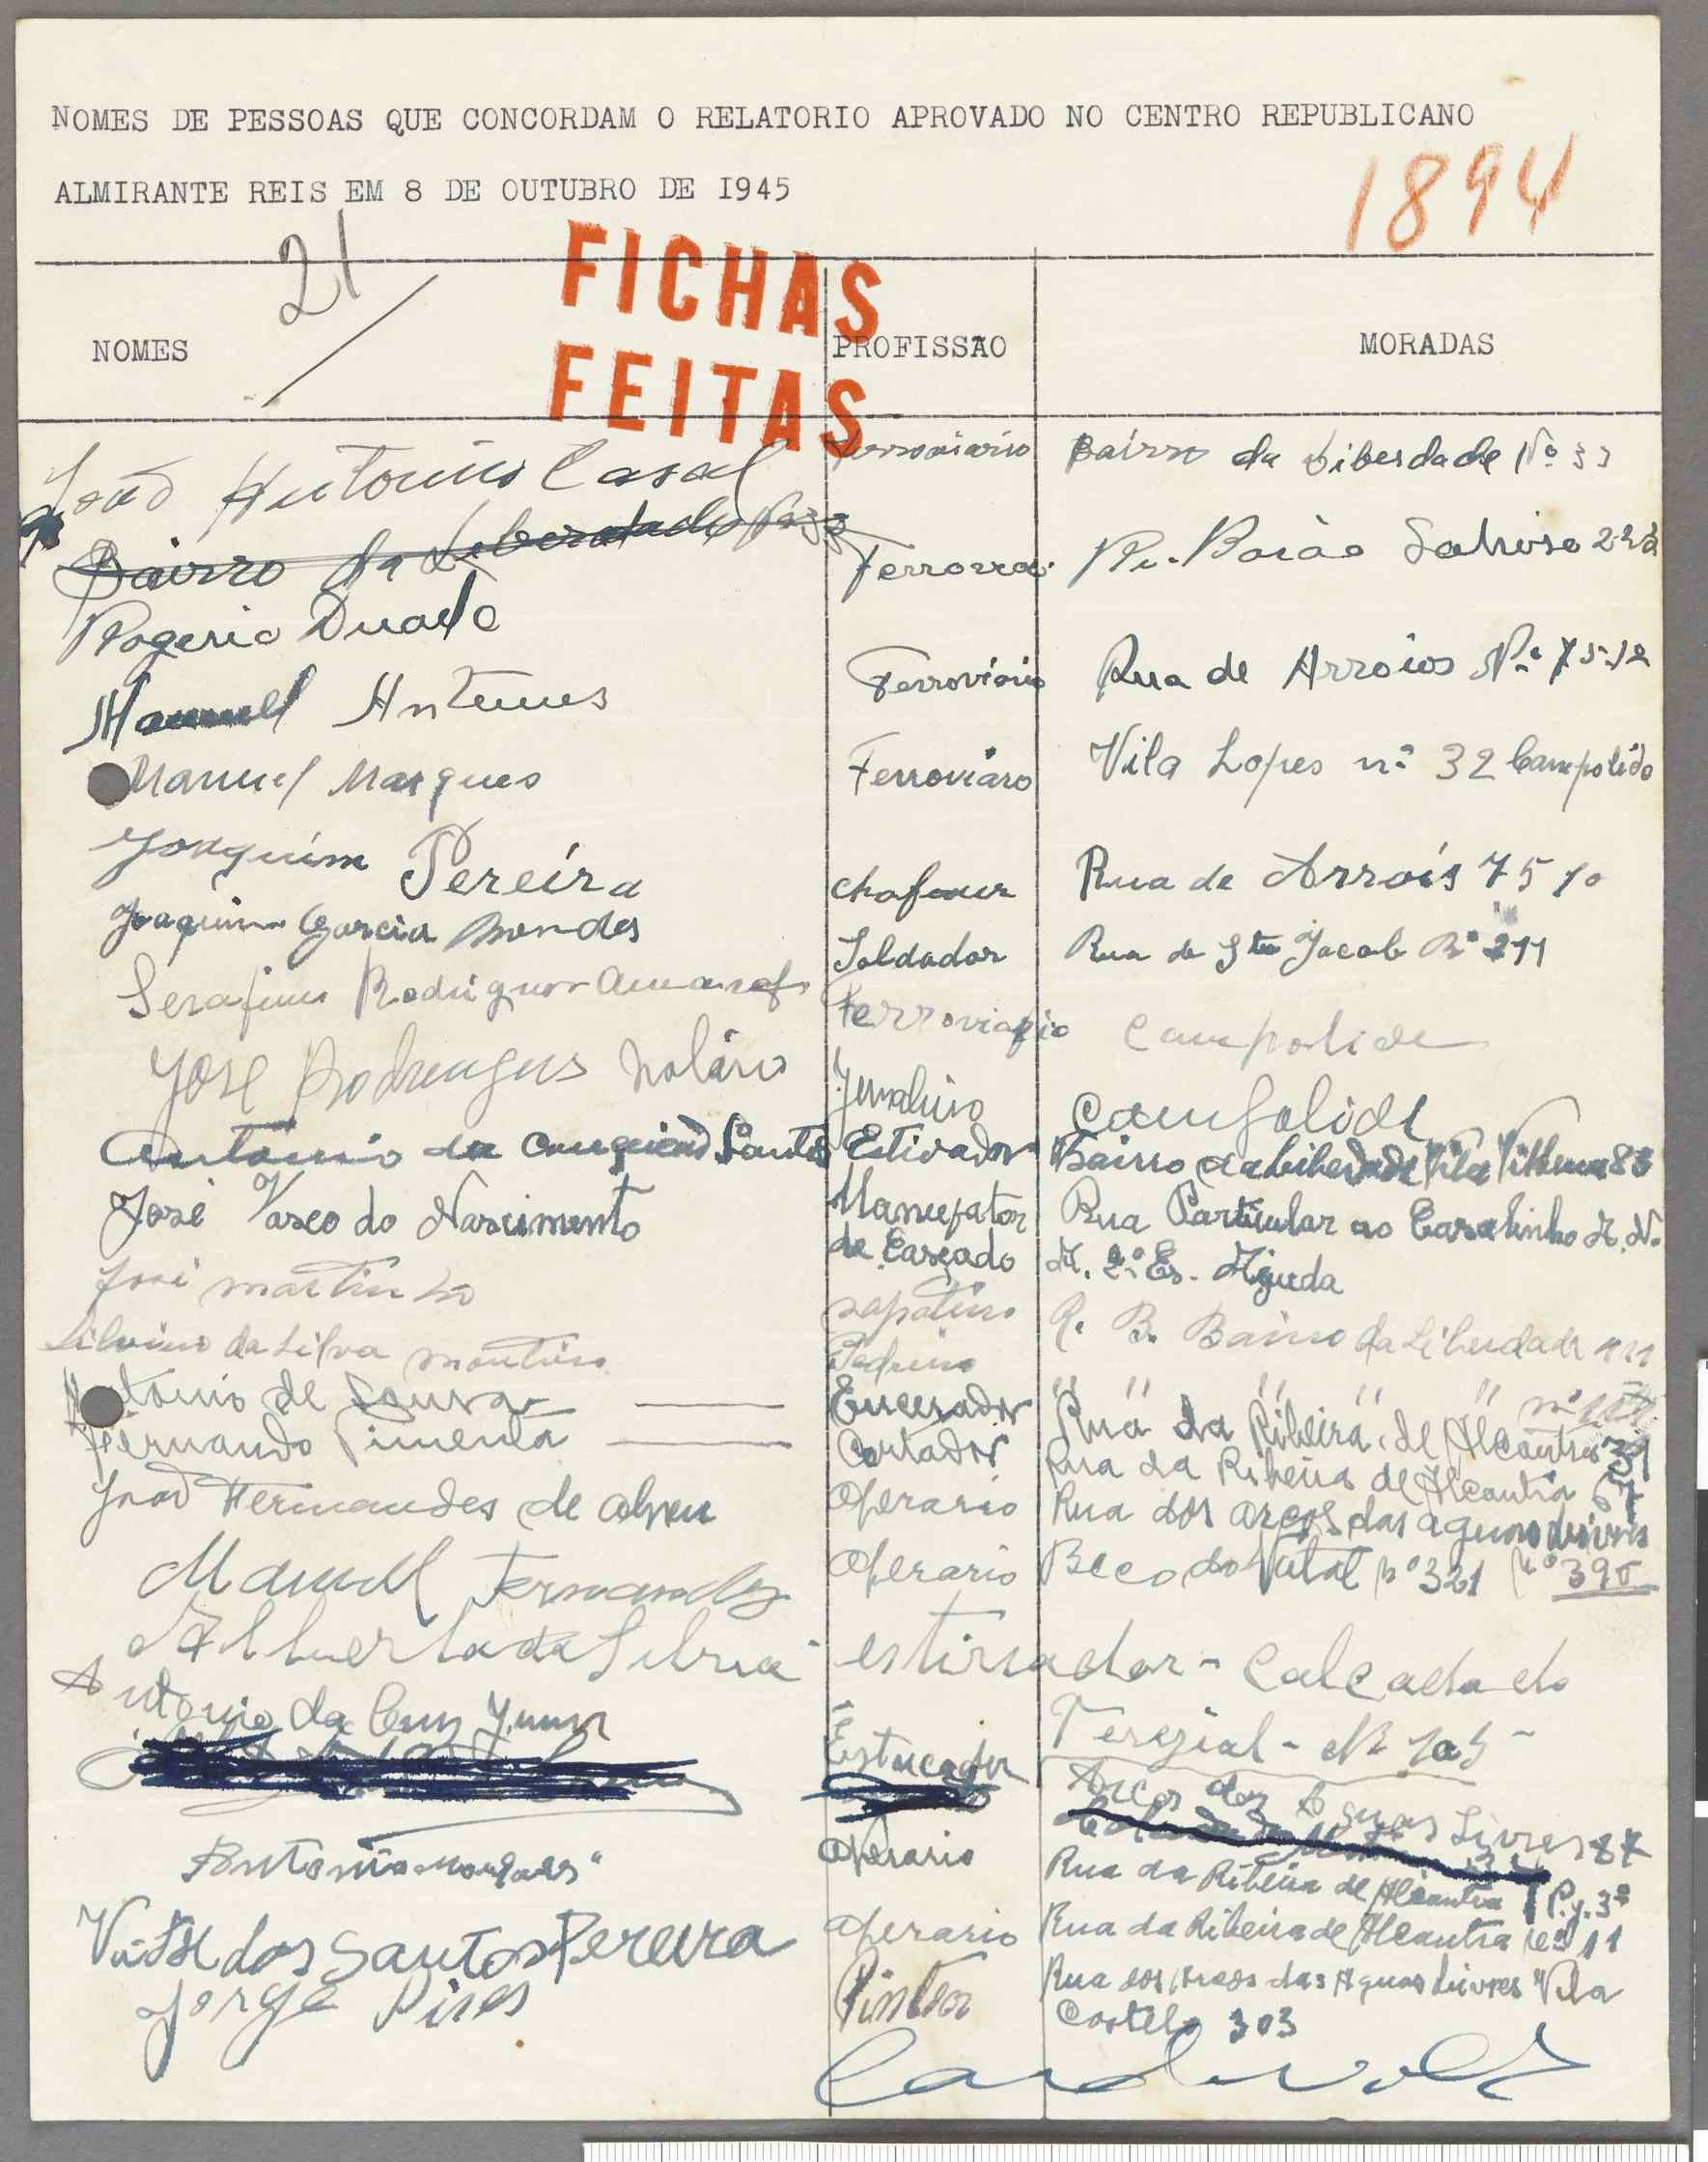 NOMES DE PESSOAS QUE CONCORDAM O RELATORIO APROVADO NO CENTRO REPUBLICANO
ALMIRANTE REIS EM 8 DE OUTUBRO DE 1945
1894
21
FICHAS
FEITAS
NOMES PROFISSÃO MORADAS
João Antonio Casal Ferroviario Bairro da Liberdade Nº 33
Bairro da Liberdade
Rogerio Duarte Ferrovia. R. Barão Sabrosa
Manuel Antunes Ferroviário Rua de Arroios Nº 75
Manuel Marques Ferroviaro Vila Lopes nº 32 Campolide
Joaquim Pereira chafeur Rua de Arrois 75
Joaquim Garcia Mendes Soldador Rua de Jacob 211
Serafim Rodrigues Ferroviario Campolide
José Rodrigues Campolide
Antonio da Santos Estivador Bairro da Liberdade Vila 83
José Vasco do Nascimento Manufator Rua Particular ao Casalinho
de Carçado Ajuda
José martinho sapateiro R. B. Bairro da Liberdade
Silvino da Silva Pedreiro " " " " "
Antonio de Sousa Encerador Rua da Ribeira de Alcantra 39
Fernando Pimenta Cortador Rua da Ribeira de Alcantra
João Hernandes de Operario Rua dos arcos das aguas nº 390
Manuel Fernandes Operario Beco do nº 321
Alberto da Silva estivador - Calçada do
105
Antonio da Cruz Estucador Arcos das Aguas Livres 87
Antonio Marques Operario Rua da Ribeira de Alcantra 3º
Vital dos Santos Pereira Operario Rua da Ribeira de Alcantra 11
Jorge Pires Pintor Rua dos Arcos das Aguas Livres Vila
Castelo 303